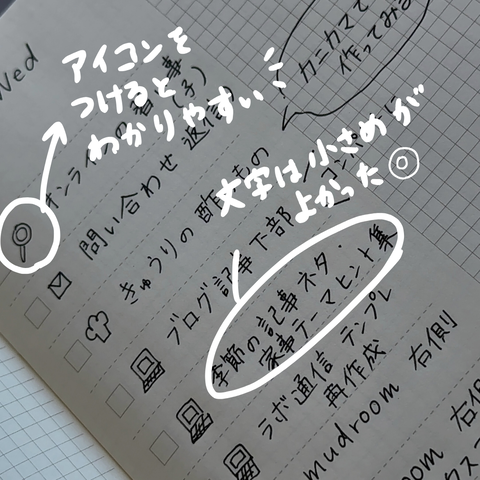 Wed
カニカマで
作ってみる
アイコンを
つけると
わかりやすい
文字は小さめが
よかった◎
オンライン
問い合わせ 返信
きゅうりの酢のもの
ブログ記事下部
季節の記事ネタ・
家事テーマヒント集
ラボ通信 テンプレ
再作成
mudroom 右側
room 右側